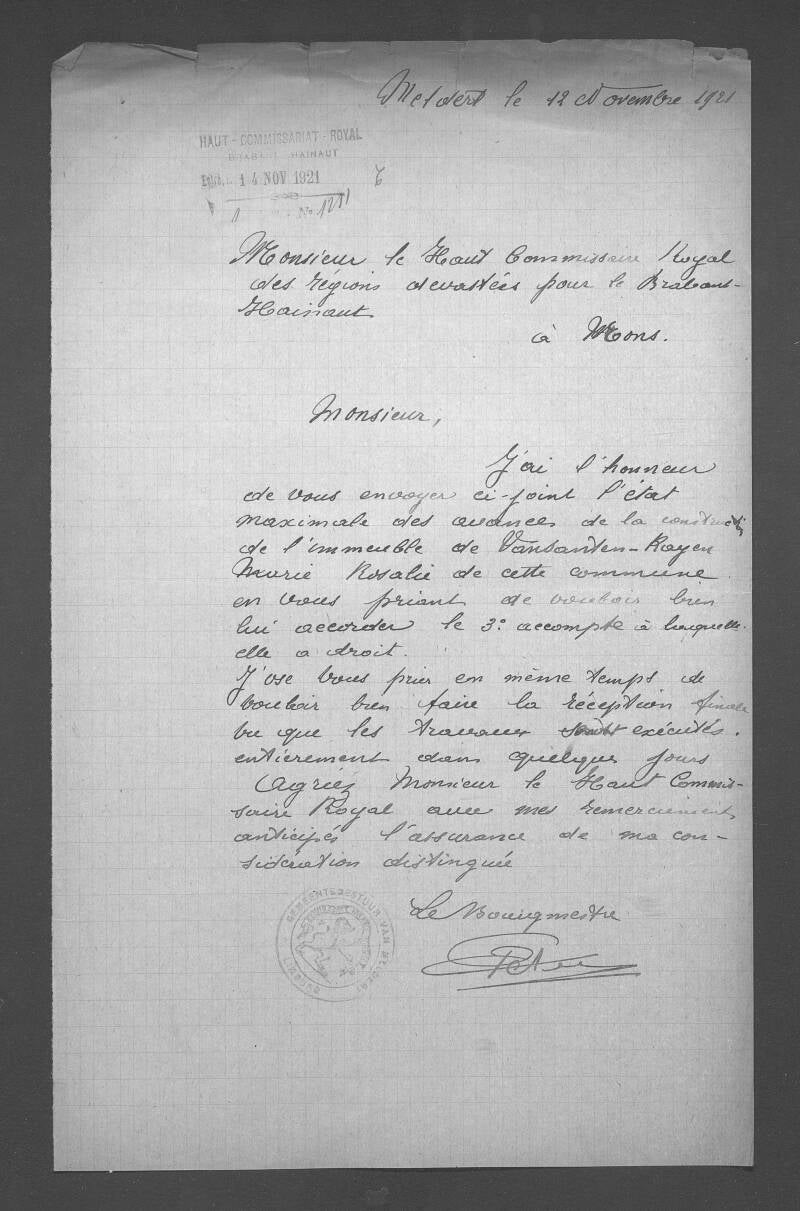 Meldert le 12 Novembre 1921
HAUT-COMMISSARIAT-ROYAL
BRABANT HAINAUT
14 NOV 1921
No
Monsieur le Haut Commissaire Royal
des régions devastées pour le Brabant-
Hainaut
à Mons.
Monsieur,
J'ai l'honneur
de vous envoyer ci-joint l'état
maximale des avances de la
de l'immeuble de Vansanten-Royen
Marie Rosalie de cette commune
en vous priant de vouloir bien
lui accorder le 3e accompte à laquelle
elle a droit.
J'ose vous prier en même temps de
vouloir bien faire la réception finale
vu que les travaux sont exécutés.
entièrement dans quelques jours
Agriéz Monsieur le Haut Commis-
saire Royal avec mes remerciements
anticipés l'assurance de ma con-
sidération distinguée
Le Bourgmestre
GEMEENTEBESTUUR VAN MELDERT
LIMBURG